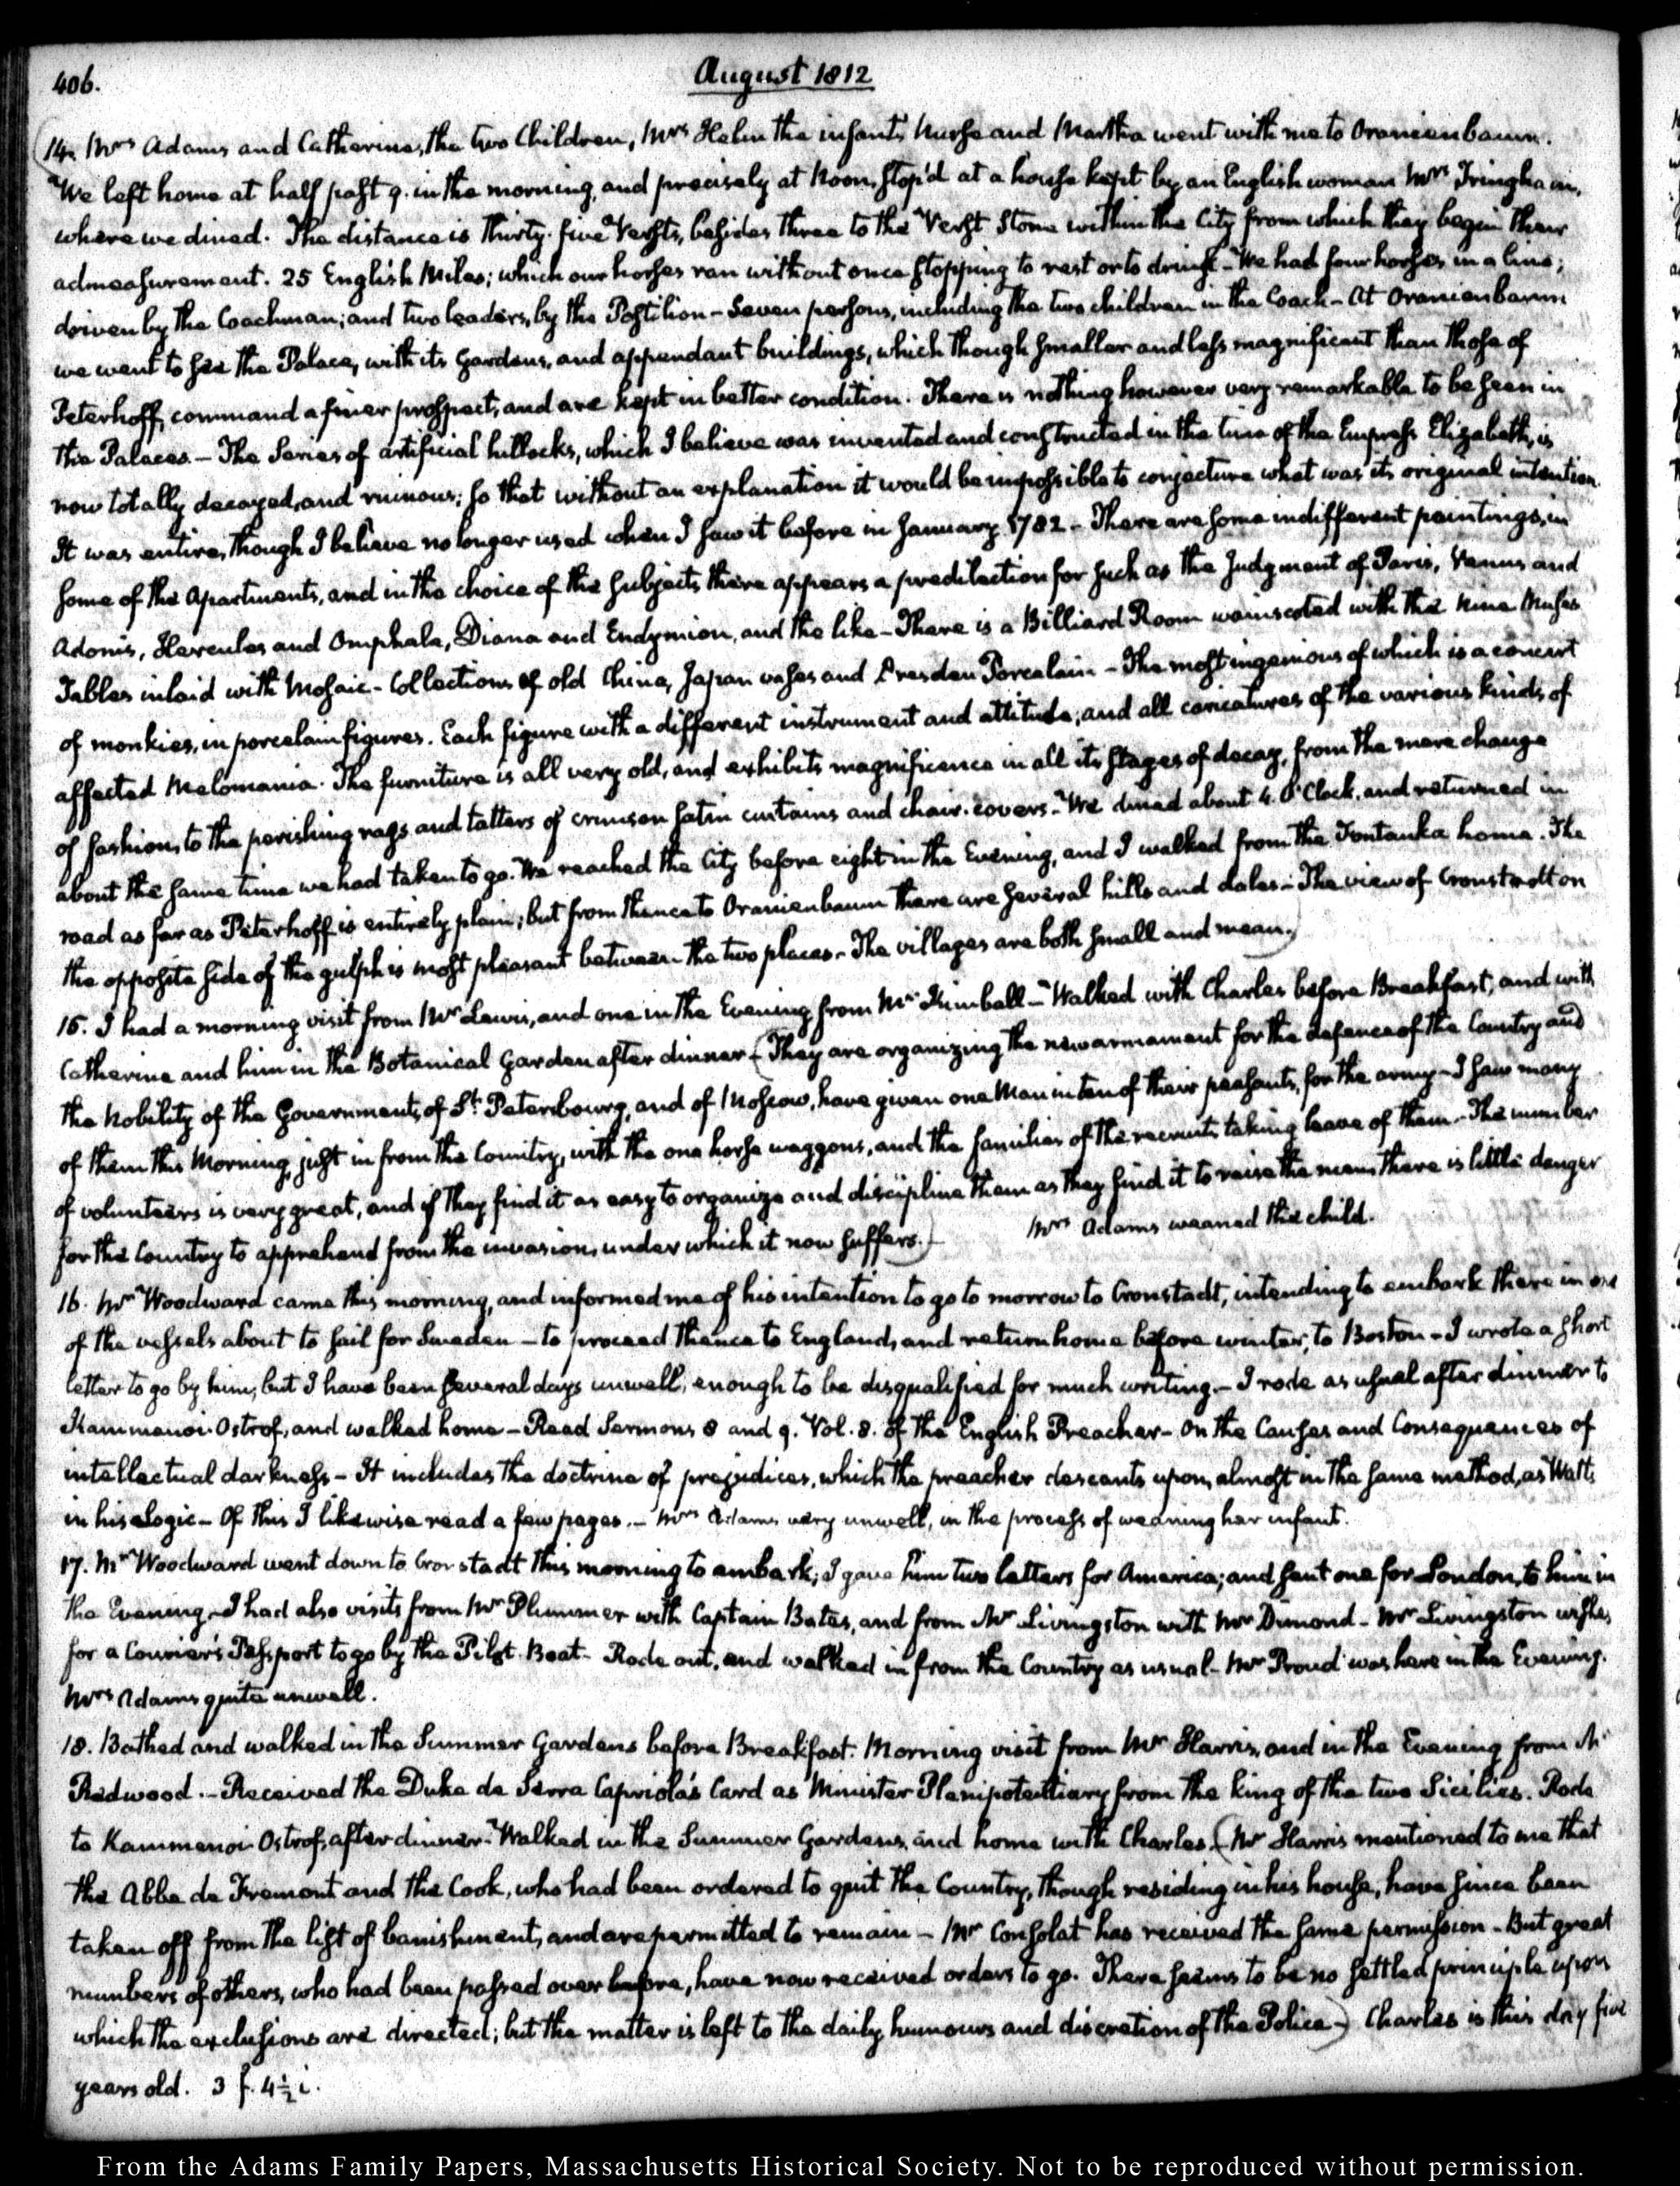 406.
August 1812
14. Mrs Adams and Catherine, the two Children, Mrs Helm the infant's Nurse and Martha went with me to Oranienbaum.
We left home at half past 9. in the morning, and precisely at Noon, stop'd at a house kept by an English woman Mrs
where we dined. The distance is thirty-five Versts, besides three to the Verst Stone within the City from which they begin their
admeasurement. 25 English Miles; which our horses ran without once stopping to rest or to drink - We had four horses in a line;
driven by the Coachman; and two leaders, by the Postilion - Seven persons, including the two children in the Coach - At Oranienbaum
we went to see the Palace, with its Gardens, and appendant buildings, which though smaller and less magnificent than those of
Peterhoff, command a finer prospect, and are kept in better condition. There is nothing however very remarkable to be seen in
the Palaces. - The Series of artificial hillocks, which I believe was invented and constructed in the time of the Empress Elizabeth, is
now totally decayed, and ruinous; so that without an explanation it would be impossible to conjecture what was its original intention.
It was entire, though I believe no longer used when I saw it before in January 1782 - There are some indifferent paintings, in
some of the Apartments, and in the choice of the subjects there appears a predilection for such as the Judgment of Paris, Venus and
Adonis, Hercules and Omphale, Diana and Endymion, and the like - There is a Billiard Room wainscoted with the nine Muses
Tables inlaid with Mosaic - Collections of old China, Japan vases and Dresden Porcelain - The most ingenious of which is a concert
of monkies, in porcelain figures. Each figure with a different instrument and attitude; and all caricatures of the various kinds of
affected Melomania. The furniture is all very old, and exhibits magnificence in all its stages of decay, from the mere change
of fashion, to the perishing rags and tatters of crimson satin curtains and chair-covers. We dined about 4. O'Clock, and returned in
about the same time we had taken to go. We reached the City before eight in the Evening, and I walked from the Fontanka home. The
road as far as Peterhoff is entirely plain; but from thence to Oranienbaum there are several hills and dales - The view of Cronstadt on
the opposite side of the gulph is most pleasant between the two places - The villages are both small and mean.)
15. I had a morning visit from Mr Lewis, and one in the Evening from Mr Kimball - Walked with Charles before Breakfast, and with
Catherine and him in the Botanical Garden after dinner - (They are organizing the new armament for the defence of the Country and
the Nobility of the Governments, of St. Petersbourg, and of Moscow, have given one Man in ten of their peasants, for the army - I saw many
of them this Morning, just in from the Country, with the one horse waggons, and the families of the recruits taking leave of them - The number
of volunteers is very great, and if they find it as easy to organize and discipline them as they find it to raise the men, there is little danger
for the Country to apprehend from the invasion, under which it now suffers.) Mrs Adams weaned the child.
16. Mr Woodward came this morning, and informed me of his intention to go to morrow to Cronstadt, intending to embark there in one
of the vessels about to sail for Sweden - to proceed thence to England, and return home before winter, to Boston - I wrote a short
letter to go by him; but I have been several days unwell, enough to be disqualified for much writing. - I rode as usual after dinner to
Kammenoi-Ostrof, and walked home - Read Sermons 8 and 9. Vol. 8. of the English Preacher - On the Causes and Consequences of
intellectual darkness - It includes the doctrine of prejudices, which the preacher descants upon, almost in the same method, as Watts
in his Logic - Of this I likewise read a few pages. - Mrs Adams very unwell, in the process of weaning her infant.
17. Mr Woodward went down to Cronstadt this morning to embark; I gave him two letters for America; and sent one for London, to him in
the Evening. I had also visits from Mr Plummer with Captain Bates, and from Mr Livingston with Mr Dimond - Mr Livingston wishes
for a Courier's Passport to go by the Pilot-Boat - Rode out, and walked in from the Country as usual - Mr Proud was here in the Evening.
Mrs Adams quite unwell.
18. Bathed and walked in the Summer Gardens before Breakfast. Morning visit from Mr Harris, and in the Evening from Mr
Redwood. - Received the Duke de Serra Capriola's Card as Minister Plenipotentiary from the King of the two Sicilies. Rode
to Kammenoi-Ostrof, after dinner - Walked in the Summer Gardens, and home with Charles. (Mr Harris mentioned to me that
the Abbe de Fremont and the Cook, who had been ordered to quit the Country, though residing in his house, have since been
taken off from the list of banishment, and are permitted to remain - Mr Consolat has received the same permission - But great
numbers of others, who had been passed over before, have now received orders to go. There seems to be no settled principle upon
which the exclusions are directed; but the matter is left to the daily humours and discretion of the Police -) Charles is this day five
years old. 3 f. 4½ i.
From the Adams Family Papers, Massachusetts Historical Society. Not to be reproduced without permission.